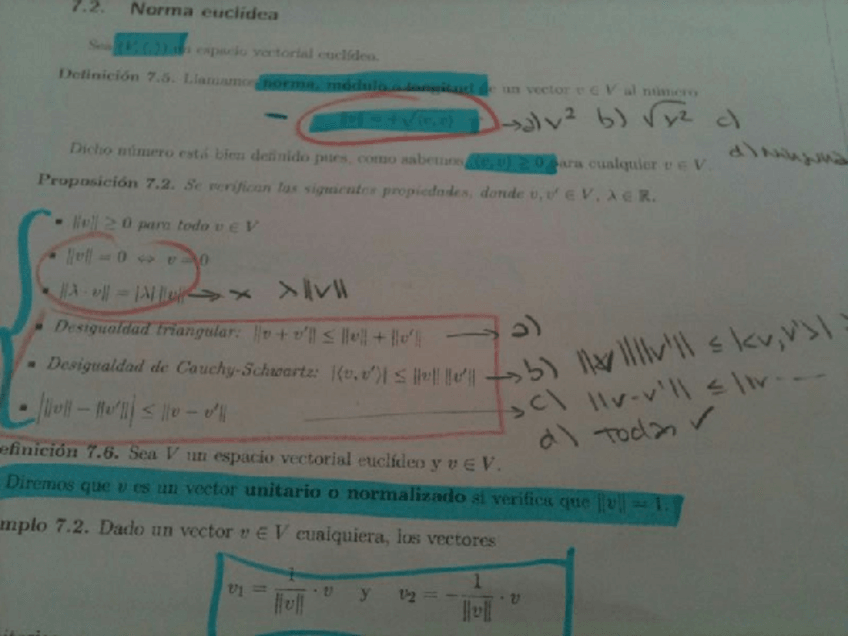 7.2. Norma euclídea
Sea (V, ⟨,⟩) un espacio vectorial euclídeo.
Definición 7.5. Llamamos norma, módulo o longitud de un vector v ∈ V al número
‖v‖ = +√⟨v, v⟩ → a) v² b) √v² c)
d) ninguna
Dicho número está bien definido pues, como sabemos, ⟨v, v⟩ ≥ 0 para cualquier v ∈ V.
Proposición 7.2. Se verifican las siguientes propiedades, donde v, v' ∈ V, λ ∈ ℝ.
▪ ‖v‖ ≥ 0 para todo v ∈ V
▪ ‖v‖ = 0 ⇔ v = 0
▪ ‖λ · v‖ = |λ| ‖v‖ → x λ‖v‖
▪ Desigualdad triangular: ‖v + v'‖ ≤ ‖v‖ + ‖v'‖ → a)
▪ Desigualdad de Cauchy-Schwartz: |⟨v, v'⟩| ≤ ‖v‖ ‖v'‖ → b) ‖v‖‖v'‖ ≤ |<v, v'>|
▪ |‖v‖ − ‖v'‖| ≤ ‖v − v'‖ → c) ‖v-v'‖ ≤ ‖v - ...
d) Todas ✓
efinición 7.6. Sea V un espacio vectorial euclídeo y v ∈ V.
Diremos que v es un vector unitario o normalizado si verifica que ‖v‖ = 1.
mplo 7.2. Dado un vector v ∈ V cualquiera, los vectores
v₁ = 1/‖v‖ · v y v₂ = − 1/‖v‖ · v